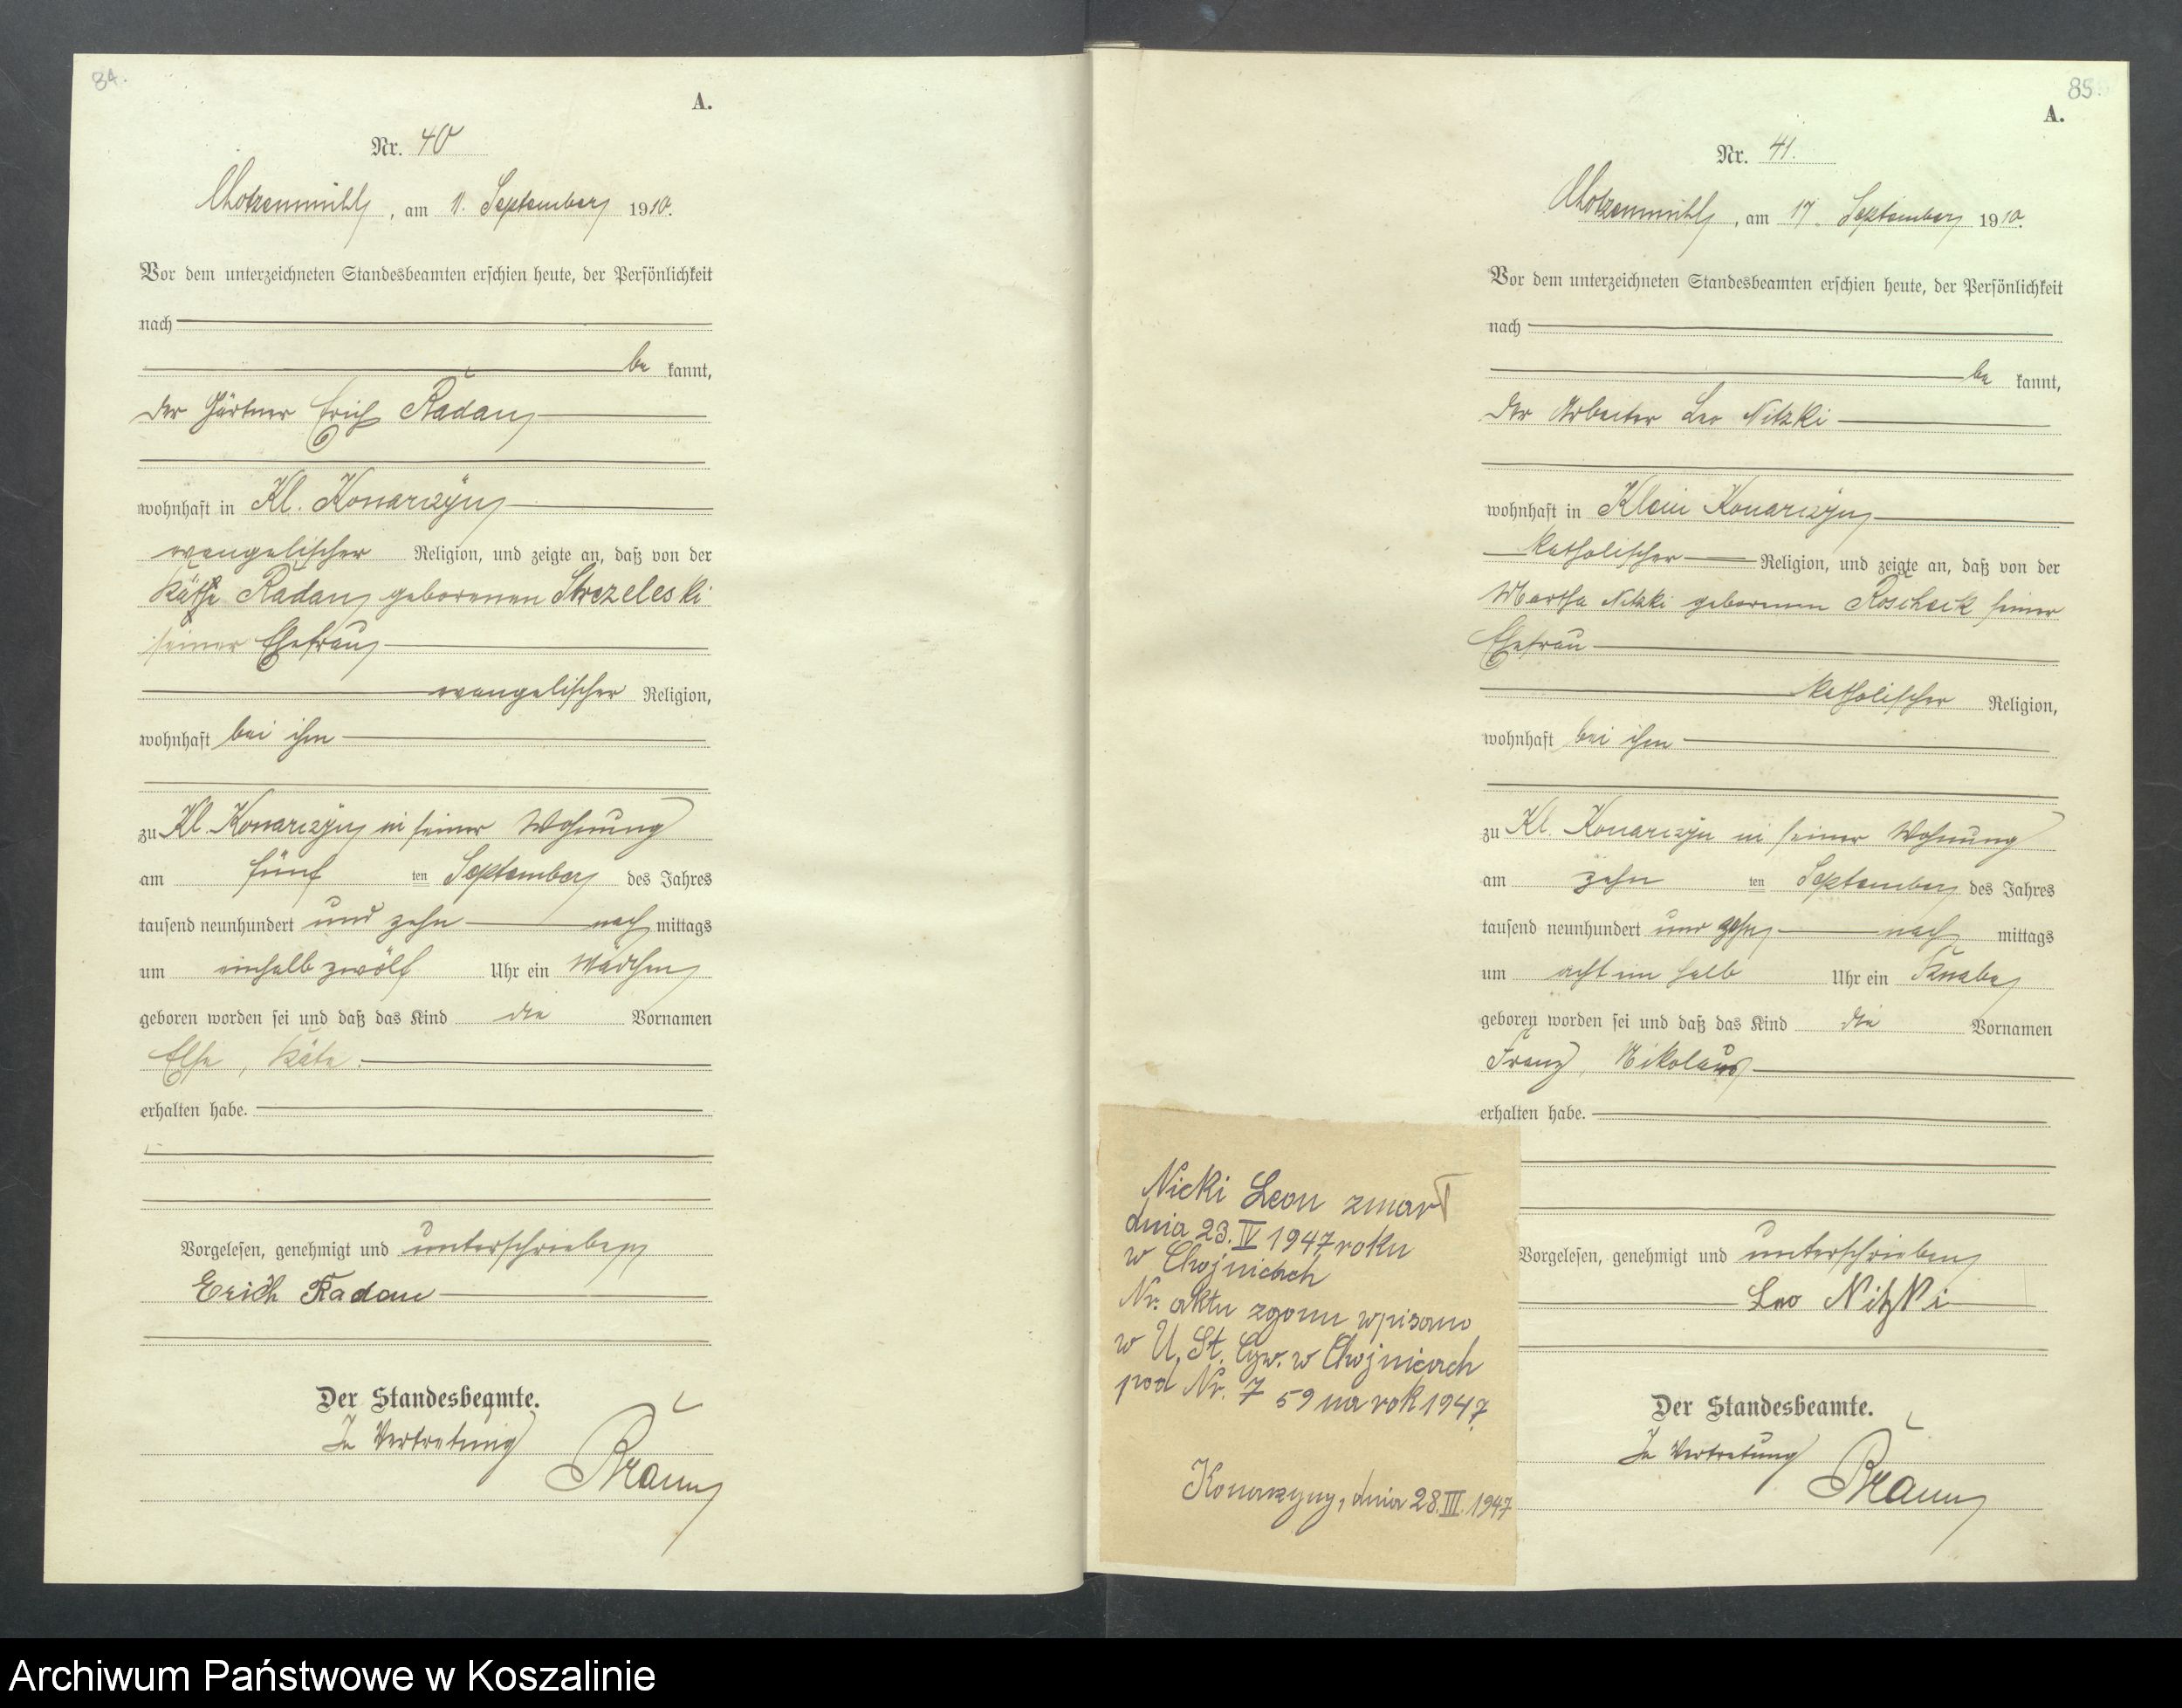 84.
A.
Nr. 40
Chotzenmühl, am 11. September 1910.
Vor dem unterzeichneten Standesbeamten erschien heute, der Persönlichkeit
nach
be kannt,
der Gärtner Erich Radau
wohnhaft in Kl. Konarczyn
evangelischer Religion, und zeigte an, daß von der
Käthe Radau geborenen Strezeleski
seiner Ehefrau
evangelischer Religion,
wohnhaft bei ihm
zu Kl. Konarczyn in seiner Wohnung
am fünf ten September des Jahres
tausend neunhundert und zehn nach mittags
um einhalb zwölf Uhr ein Mädchen
geboren worden sei und daß das Kind die Vornamen
Else, Käte.
erhalten habe.
Vorgelesen, genehmigt und unterschrieben
Erich Radau
Der Standesbeamte.
In Vertretung
Braun
85.
A.
Nr. 41.
Chotzenmühl, am 17. September 1910.
Vor dem unterzeichneten Standesbeamten erschien heute, der Persönlichkeit
nach
be kannt,
der Arbeiter Leo Nitzki
wohnhaft in Klein Konarczyn
katholischer Religion, und zeigte an, daß von der
Martha Nitzki geborenen Roschek seiner
Ehefrau
katholischer Religion,
wohnhaft bei ihm
zu Kl. Konarczyn in seiner Wohnung
am zehn ten September des Jahres
tausend neunhundert und zehn nach mittags
um acht ein halb Uhr ein Knabe
geboren worden sei und daß das Kind die Vornamen
Franz, Nikolaus
erhalten habe.
Vorgelesen, genehmigt und unterschrieben
Leo Nitzki
Der Standesbeamte.
In Vertretung
Braun
Nicki Leon zmarł
dnia 23. IV 1947 roku
w Chojnicach
Nr. aktu zgonu wpisano
w U. St. Cyw. w Chojnicach
pod Nr. 7 59 na rok 1947.
Konarzyny, dnia 28. III. 1947
Archiwum Państwowe w Koszalinie